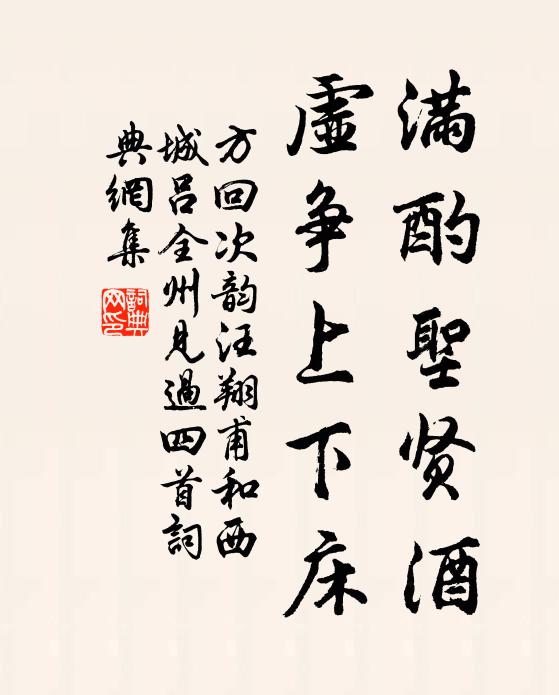 满酌聖贤酒
虚争上下床
方回次韵汪翔甫和西
城吕全州見過四首詞
典網集
詞典
网印